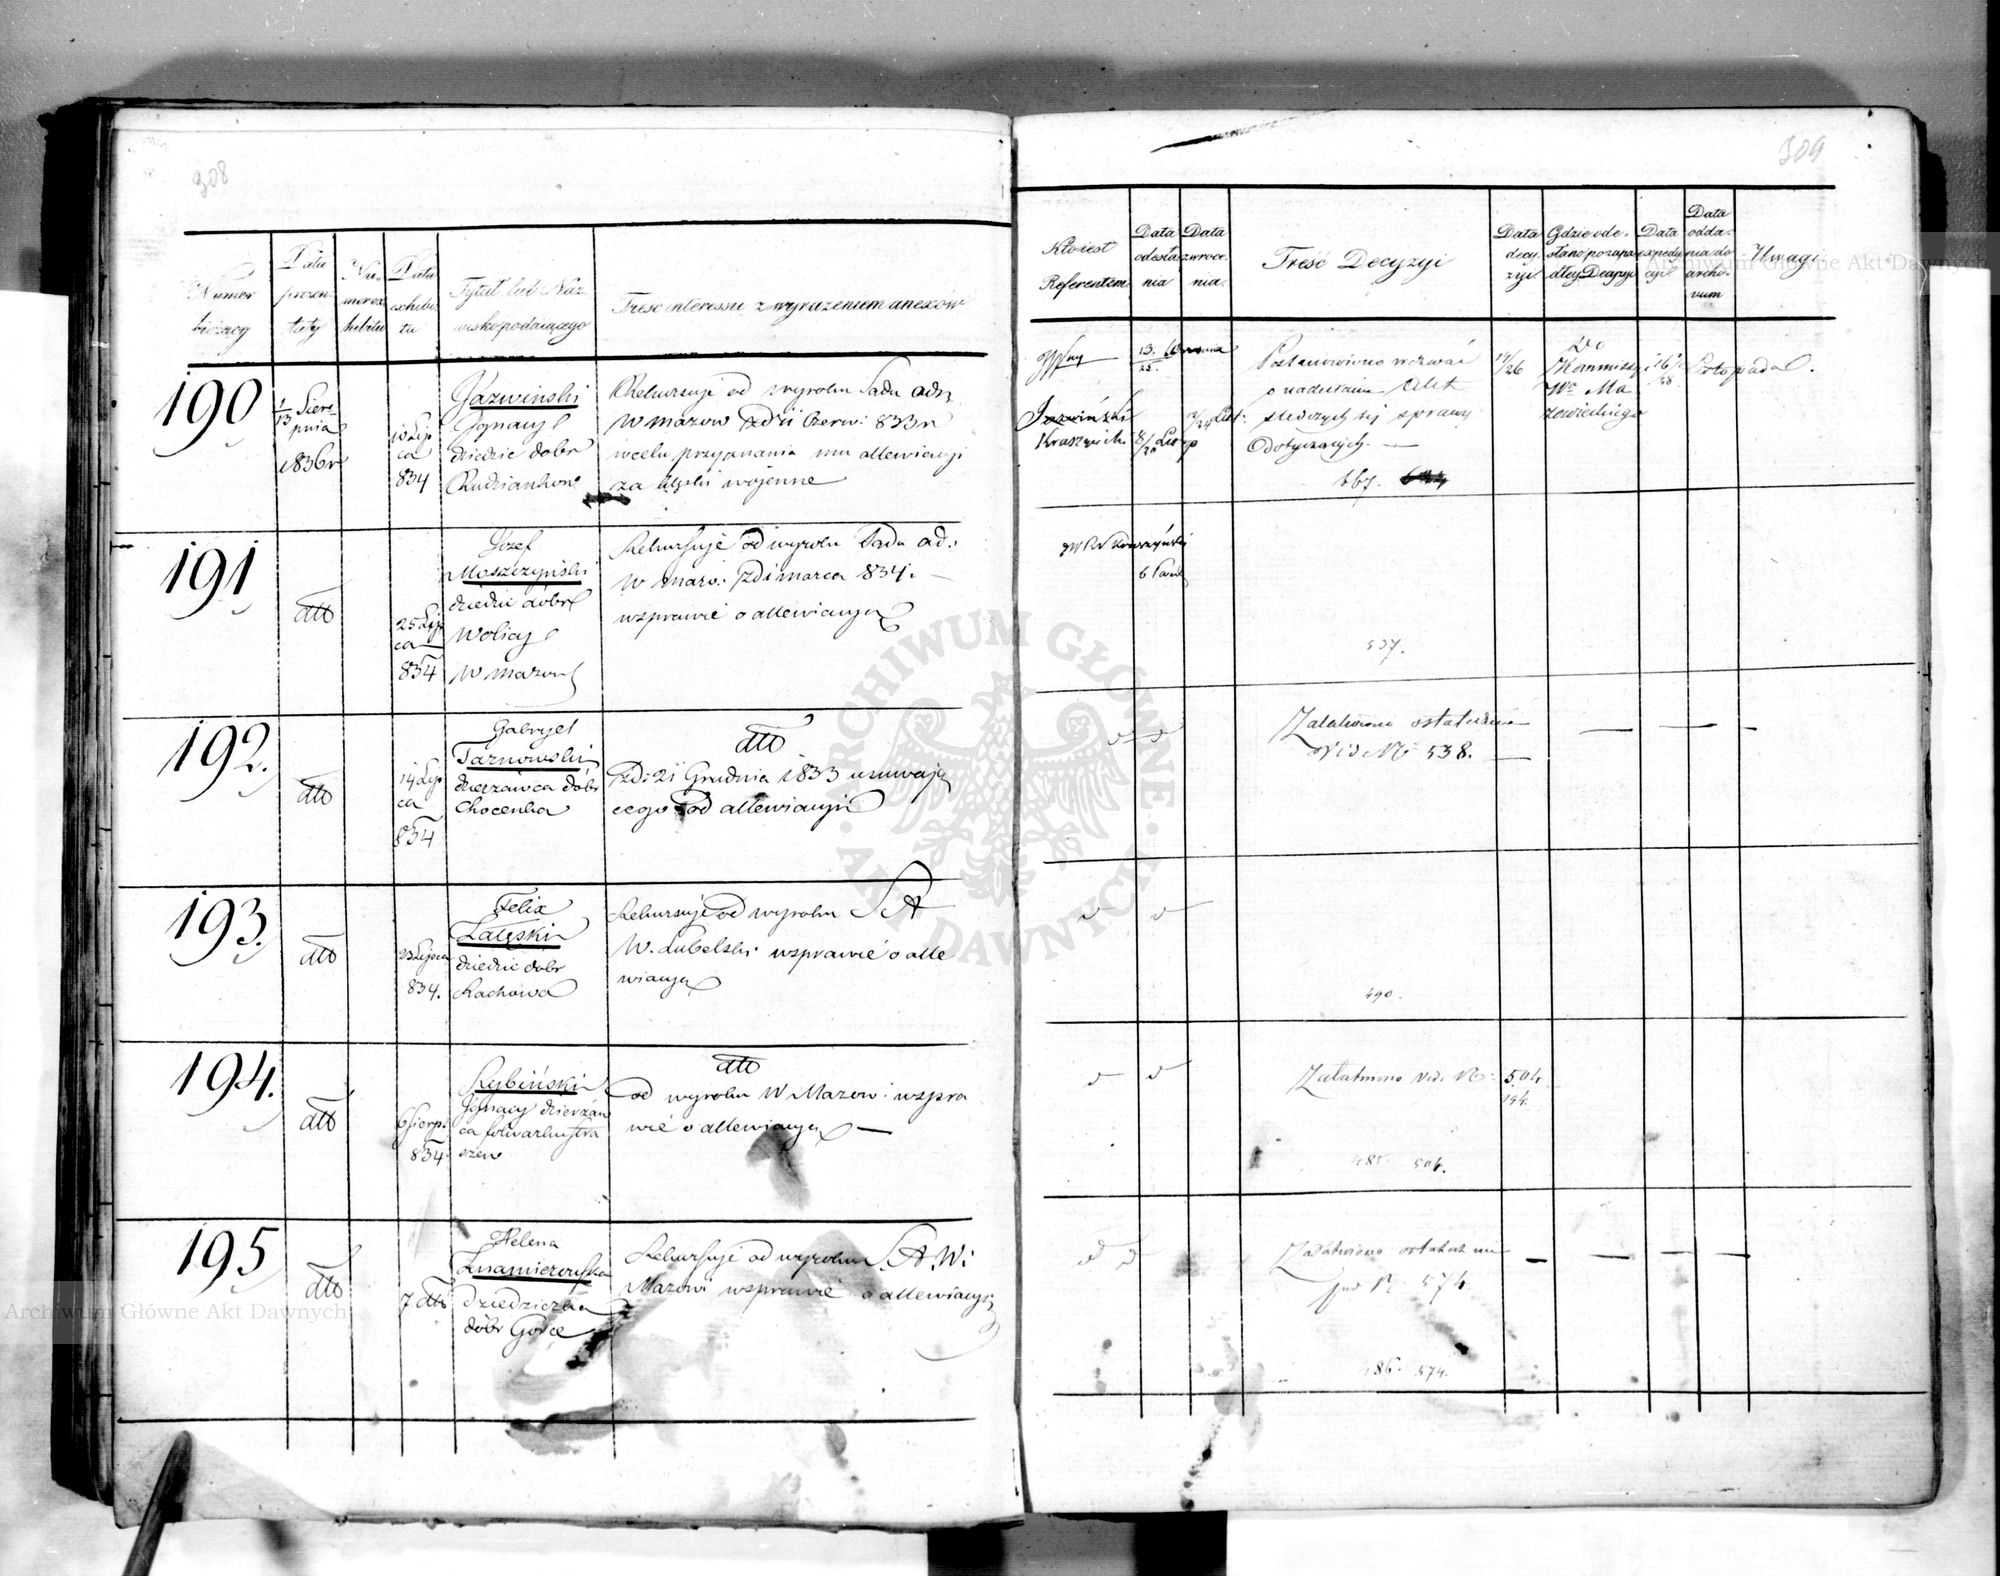 308
Numer
bieżący
Data
prezen-
taty
Nu-
mer ex-
hibitu
Data
exhibi-
tu
Tytuł lub Naz-
wisko podaiącego
Treść interessu z wyrażeniem anexów
190
1/13 Sierp-
pnia
1836 r
10 Lip
ca
834
Jaźwiński
Ignacy
dziedzic dobr
Rudzianków
Rekursuje od wyroku Sadu adm
W mazow z d 11 Czerw: 833 r
w celu przyznania mu allewiacyi
za klęski wojenne
191
dtto
25 Lip
ca
834
Józef
Moszczyński
dziedzic dóbr
Wolicy
W mazow
Rekursuje od wyroku Sadu ad:
W mazo: z d 1 marca 834. —
w sprawie o allewiacyą
192.
dtto
14 Lip
ca
834
Gabryel
Tarnowski
dzierżawca dóbr
Chocenka
dtto
z d: 21 Grudnia 1833 usuwają
cego od allewiacyi
193.
dtto
23 Lipca
834.
Felix
Załęski
dziedzic dobr
Rachowa
Rekursuje od wyroku S A
W. Lubelski w sprawie o alle
wiacyą
194.
dtto
6 Sierp:
834
Rybiński
Ignacy dzierżaw
ca folwarku Stra
szew
dtto
od wyroku W Mazow: w spra
wie o allewiacyą —
195
dtto
7 dtto
Helena
Znamierowska
Dziedziczka
dóbr Gorce
Rekursuje od wyroku S. A. W:
Mazow: w sprawie o allewiacyą
309
Kto iest
Referentem
Data
odesła-
nia
Data
zwróce-
nia.
Treść Decyzyi
Data
decy-
zyi
Gdzie ode-
słano po zapa-
dłey Decyzyi
Data
expedy-
cyi
Data
odda-
nia do
archi-
vum
Uwagi
13.
25.
Jaźwiński
Postanowiono wezwać
o nadesłanie Akt
śledczych tej sprawy
dotyczących. —
667.
14/26
Do
Kommissyi
Wa Ma
zowieckiego
16/28
Listopada.
JW Rr Kraszyński
537.
Załatwiono ostatecznie
Vide No 538. —
490.
Załatwiono Vide No 504
194.
485. 504.
Załatwiono ostatecznie
pod N: 574
486. 574.
ARCHIWUM GŁÓWNE
AKT DAWNYCH
Archiwum Główne Akt Dawnych
Archiwum Główne Akt Dawnych